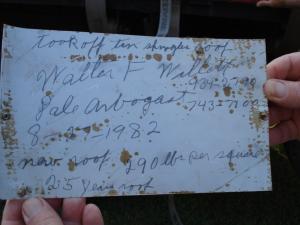 took off tin shingle roof
Walter F Willett
934-2790
Dale Arbogast 743-7100
8-27-1982
new roof 290 lbs per square
25 year roof